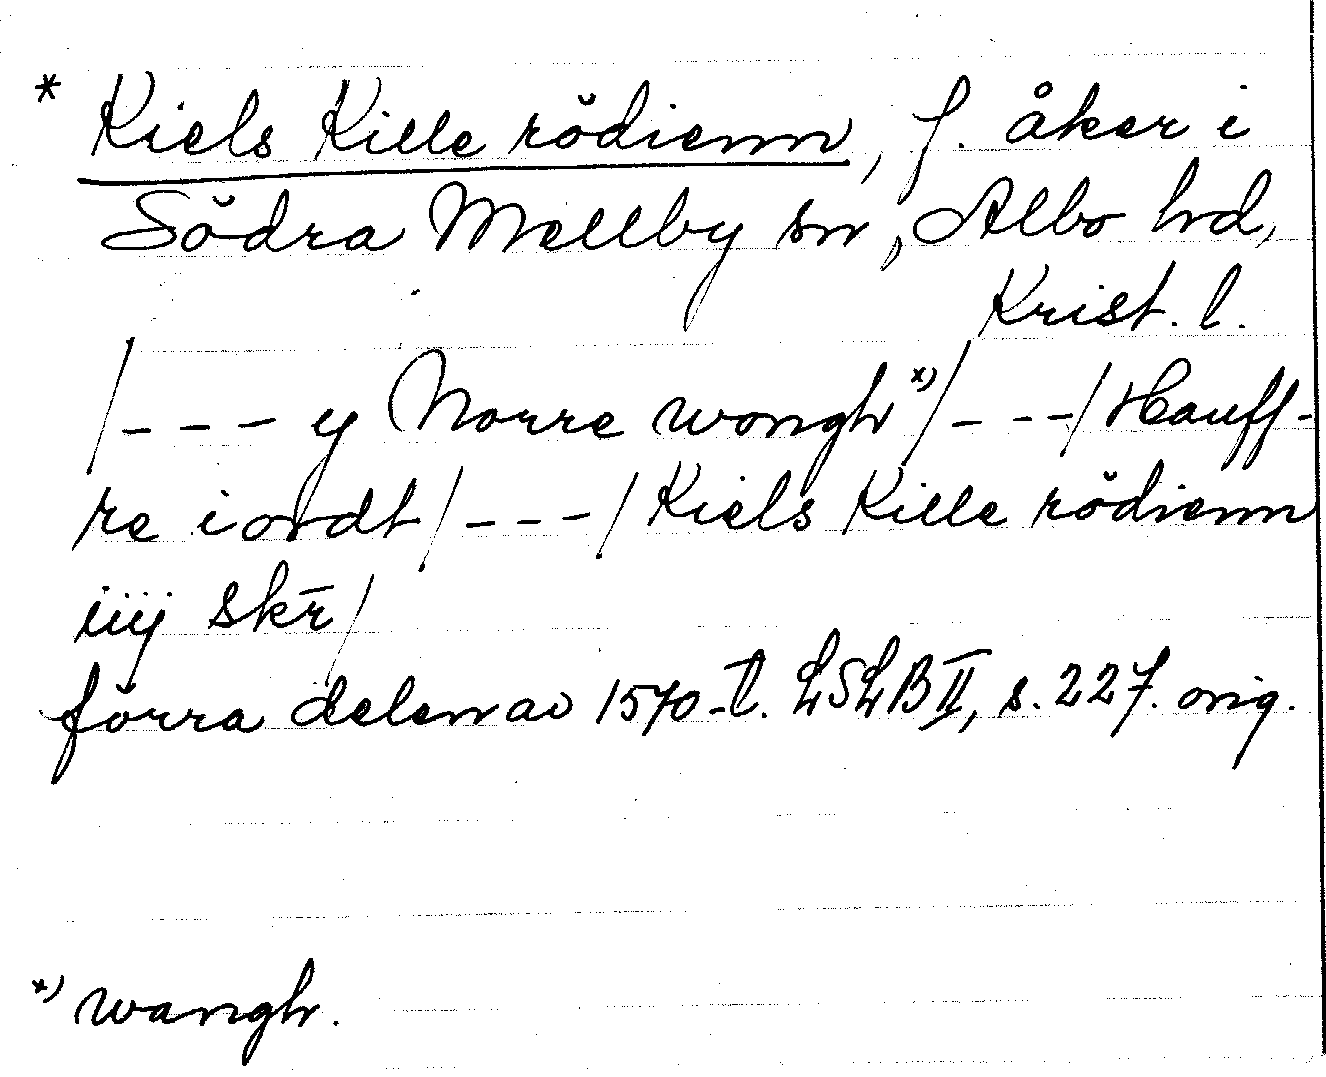 * Kiels Kille rödienn, f. åker i
Södra Mellby sn, Albo hd,
Krist. l.
/--- y Norre wongh x)/---/Hauff-
re iordt/---/Kiels Kille rödienn
iiij skr̄/
förra delen av 1570-t. LSLB II, s. 227. orig.
x) wangh.